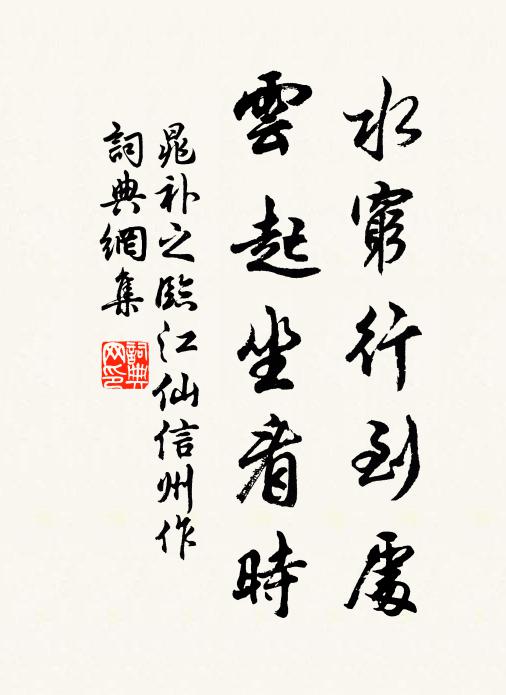 水窮行到處
雲起坐看時
晁补之臨江仙信州作
詞典網集
詞典
网印